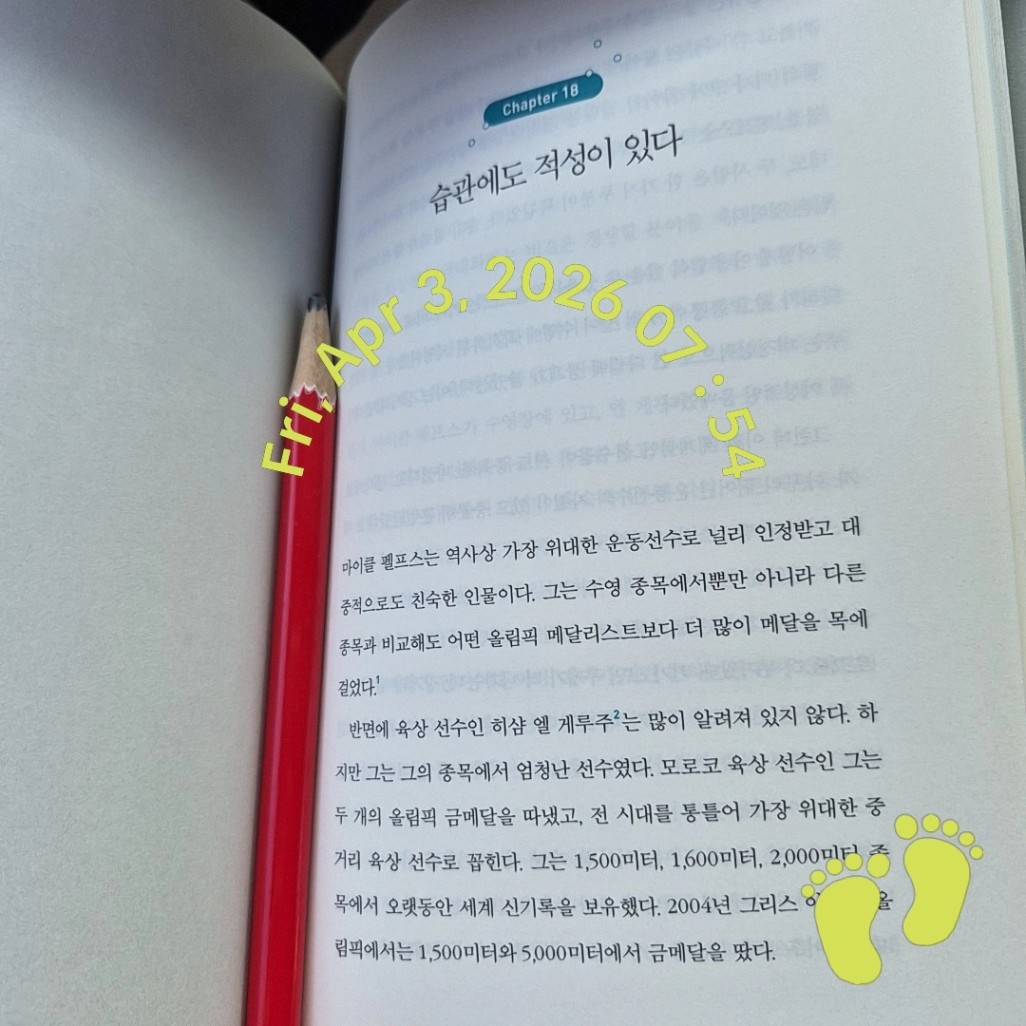 Chapter 18
습관에도 적성이 있다
Fri, Apr 3, 2026 07:54
마이클 펠프스는 역사상 가장 위대한 운동선수로 널리 인정받고 대
중적으로도 친숙한 인물이다. 그는 수영 종목에서뿐만 아니라 다른
종목과 비교해도 어떤 올림픽 메달리스트보다 더 많이 메달을 목에
걸었다.1
반면에 육상 선수인 히샴 엘 게루주2는 많이 알려져 있지 않다. 하
지만 그는 그의 종목에서 엄청난 선수였다. 모로코 육상 선수인 그는
두 개의 올림픽 금메달을 따냈고, 전 시대를 통틀어 가장 위대한 중
거리 육상 선수로 꼽힌다. 그는 1,500미터, 1,600미터, 2,000미터 종
목에서 오랫동안 세계 신기록을 보유했다. 2004년 그리스 올
림픽에서는 1,500미터와 5,000미터에서 금메달을 땄다.